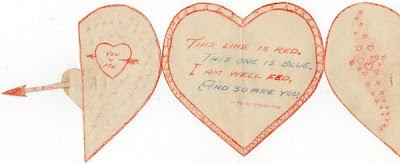 YOU
ME
THIS LINE IS RED.
THIS ONE IS BLUE.
I AM WELL FED,
AND SO ARE YOU.